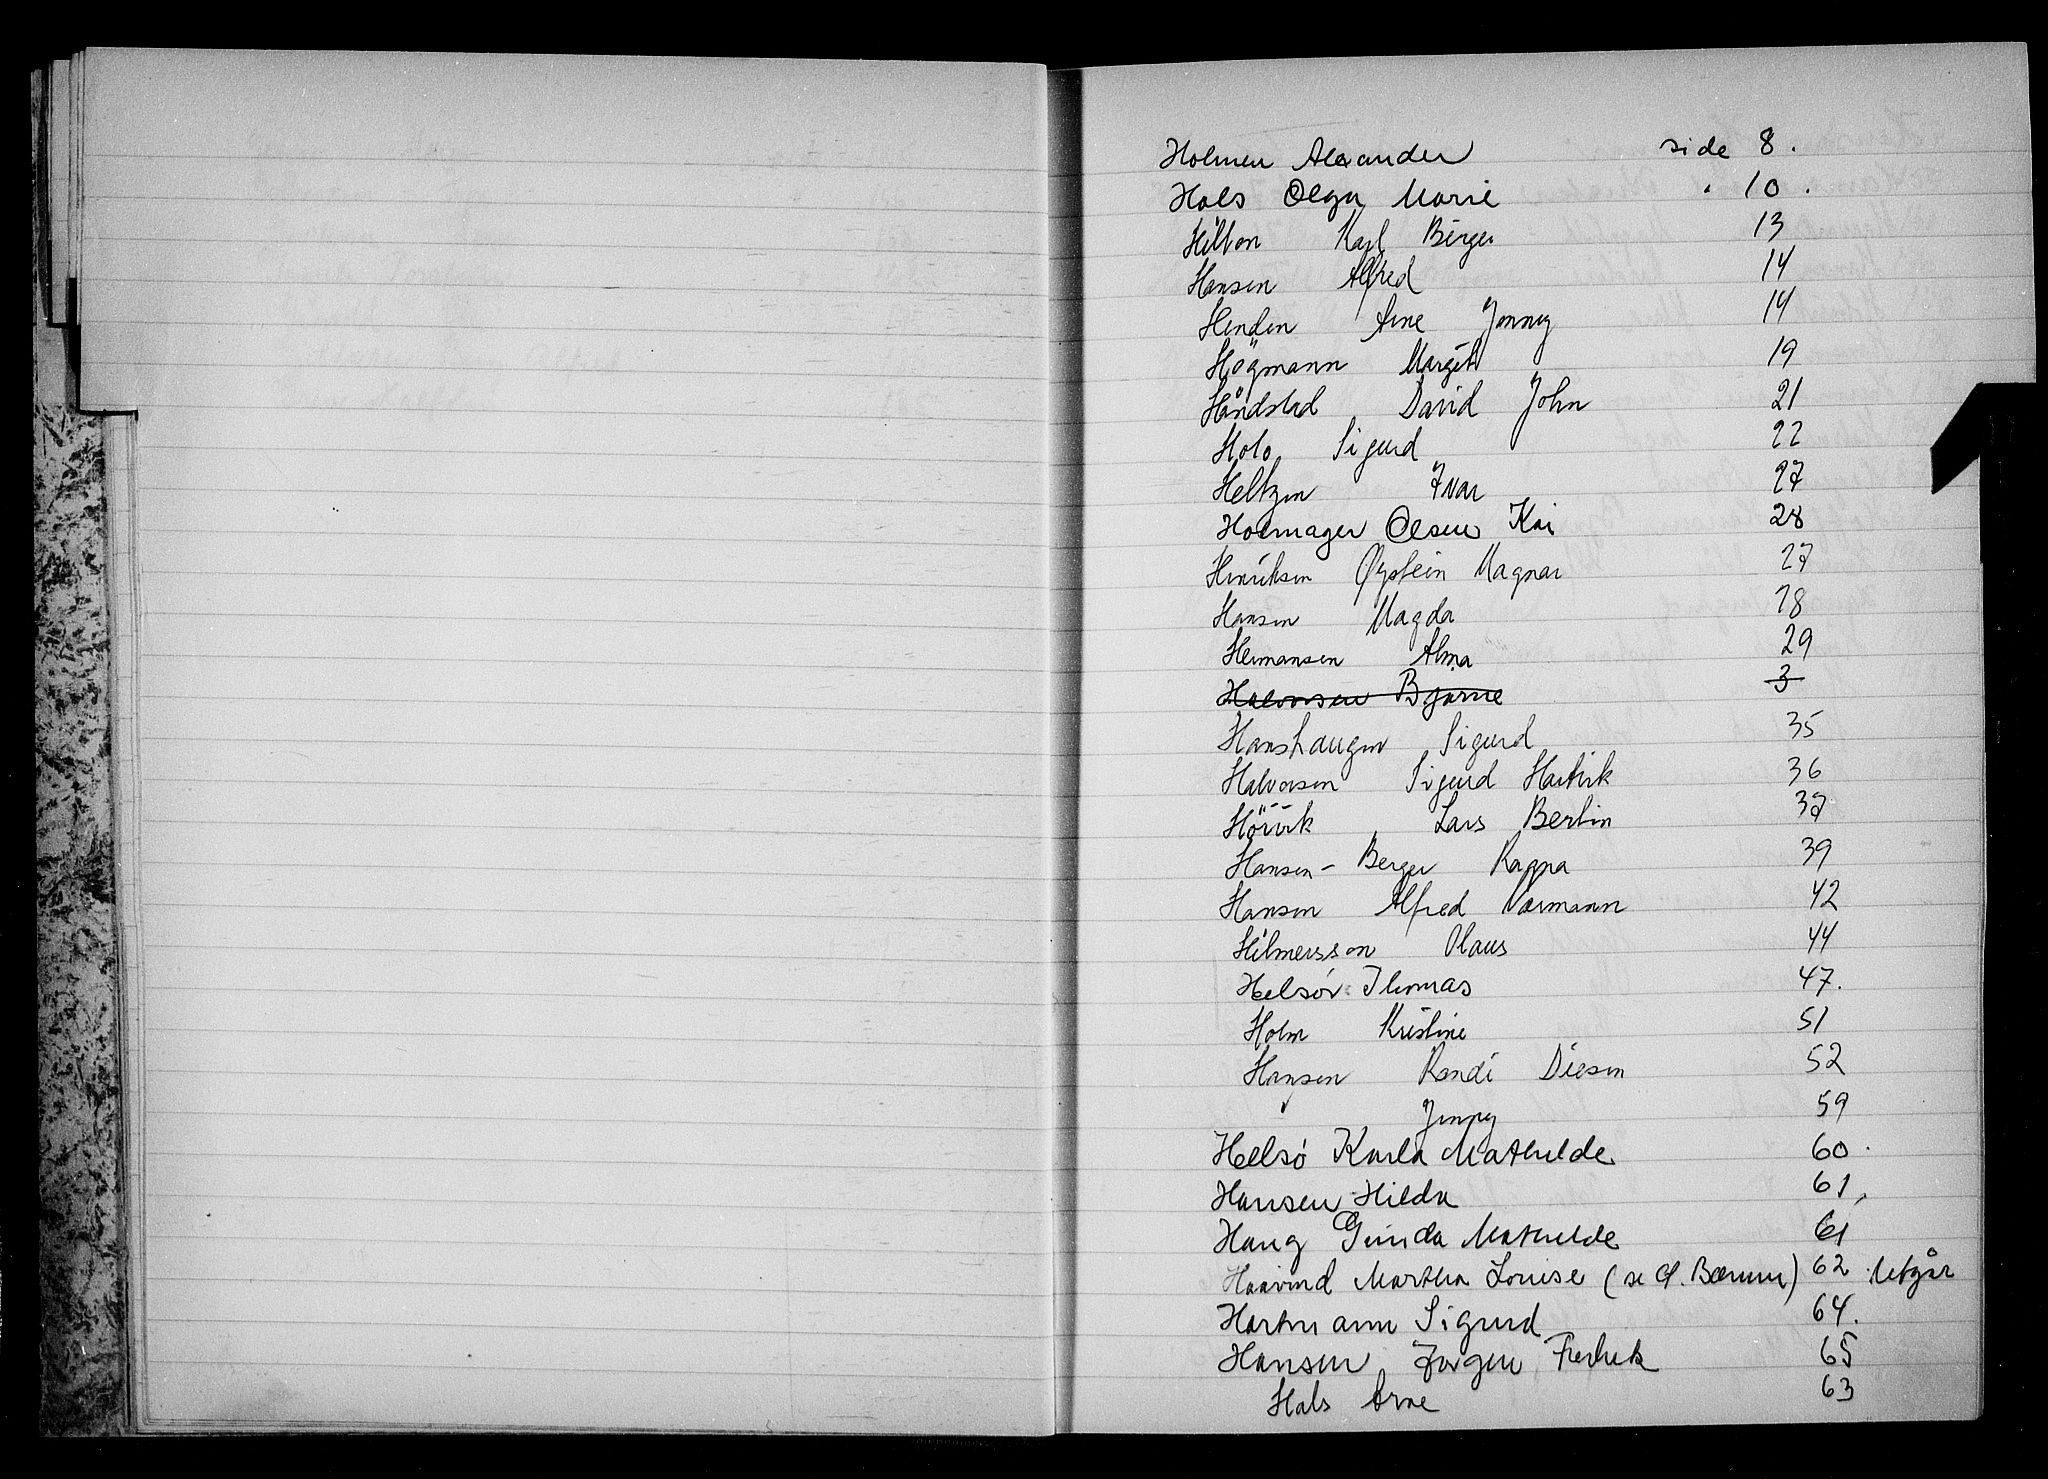 Holmen Alexander side 8.
Hals Olga Marie " 10.
Hilton Karl Birger 13
Hansen Alfred 14
Henden Arne Jonny 14
Högmann Margit 19
Håndstad David John 21
Holo Sigurd 22
Heltzen Ivar 27
Holmager Olsen Kai 28
Henriksen Øystein Magnar 27
Hansen Magda 28
Hermansen Alma 29
Halvorsen Bjarne 3
Hanshaugen Sigurd 35
Halvorsen Sigurd Hartvik 36
Hövik Lars Bertin 37
Hansen-Berger Ragna 39
Hansen Alfred Normann 42
Hilmersson Olaus 44
Helsör Thomas 47.
Holm Kristine 51
Hansen Randi Diesen 52
" Jenny 59
Helsø Karla Mathilde 60.
Hansen Hilda 61,
Haug Gunda Mathilde 61
Haavind Martha Louise (se A. Bærum) 62 Utgår
Hartmann Sigurd 64.
Hansen Jørgen Fredrik 65
Hals Arne 63